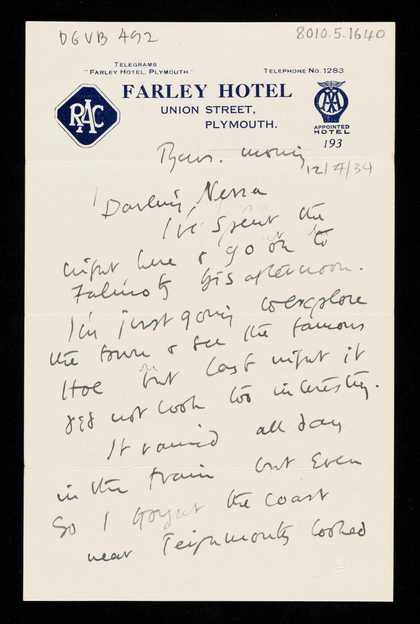 DGVB 492
8010.5.1640
TELEGRAMS
"FARLEY HOTEL, PLYMOUTH."
TELEPHONE NO. 1283
RAC
FARLEY HOTEL
UNION STREET,
PLYMOUTH.
AA
APPOINTED
HOTEL
193
Thurs. morning
12/4/34
Darling Nessa
I've spent the
night here & go on to
Falmouth this afternoon.
I'm just going to explore
the town & see the famous
Hoe but last night it
did not look too interesting.
It rained all day
in the train but even
so I thought the coast
near Teignmouth looked